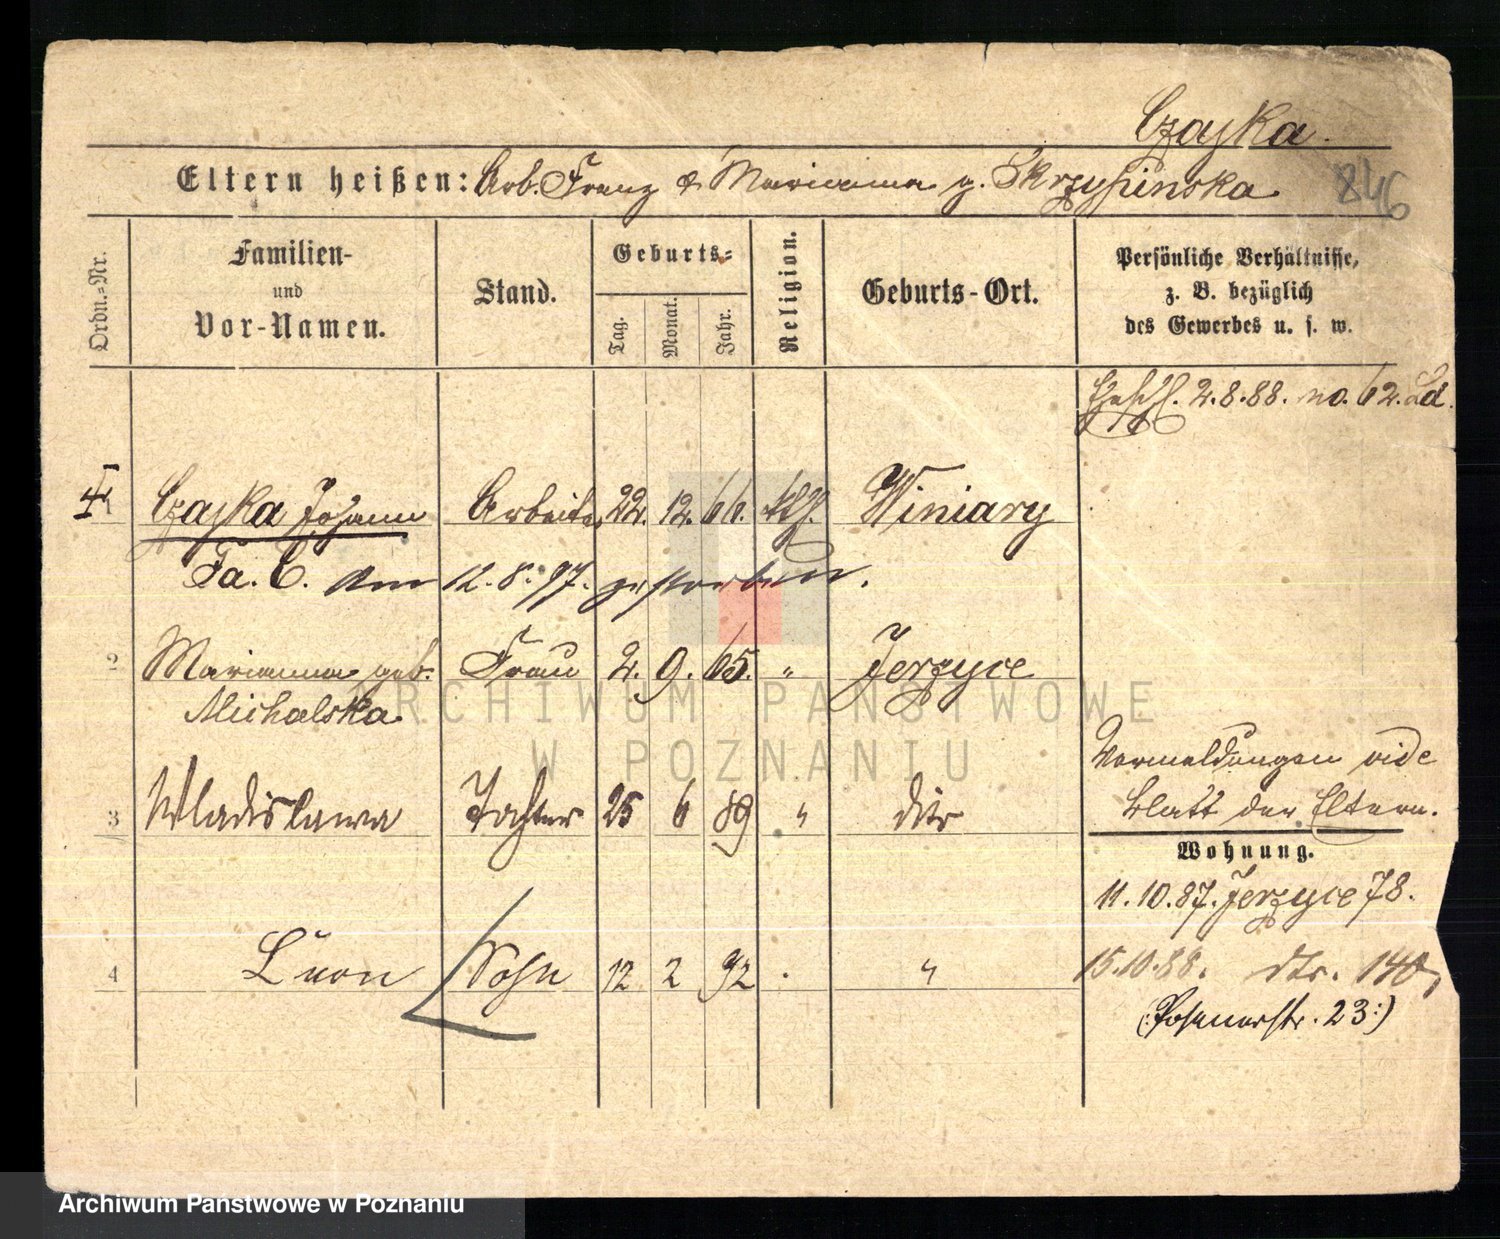 Czajka.
Eltern heißen: Arb. Franz & Marianna g. Skrzypinska
846
Ordn.=Nr.
Familien-
und
Vor-Namen.
Stand.
Geburts=
Tag.
Monat.
Jahr.
Religion.
Geburts-Ort.
Persönliche Verhältnisse,
z. B. bezüglich
des Gewerbes u. s. w.
2.8.88. no. 62.
1 Czajka Johann Arbeiter 22. 12. 66. kth. Winiary
Fa. C. am 12.8.97. gestorben.
2 Marianna geb. Frau 2. 9. 65. " Jerzyce
Michalska
3 Wladislawa Tochter 25 6 89 " dito
Vermeldungen vide
Blatt der Eltern.
Wohnung.
11.10.87. Jerzyce 78.
4 Leon Sohn 12 2 92 . "
15.10.88. dto. 140,
(: Posenerstr. 23:)
ARCHIWUM PAŃSTWOWE
W POZNANIU
Archiwum Państwowe w Poznaniu